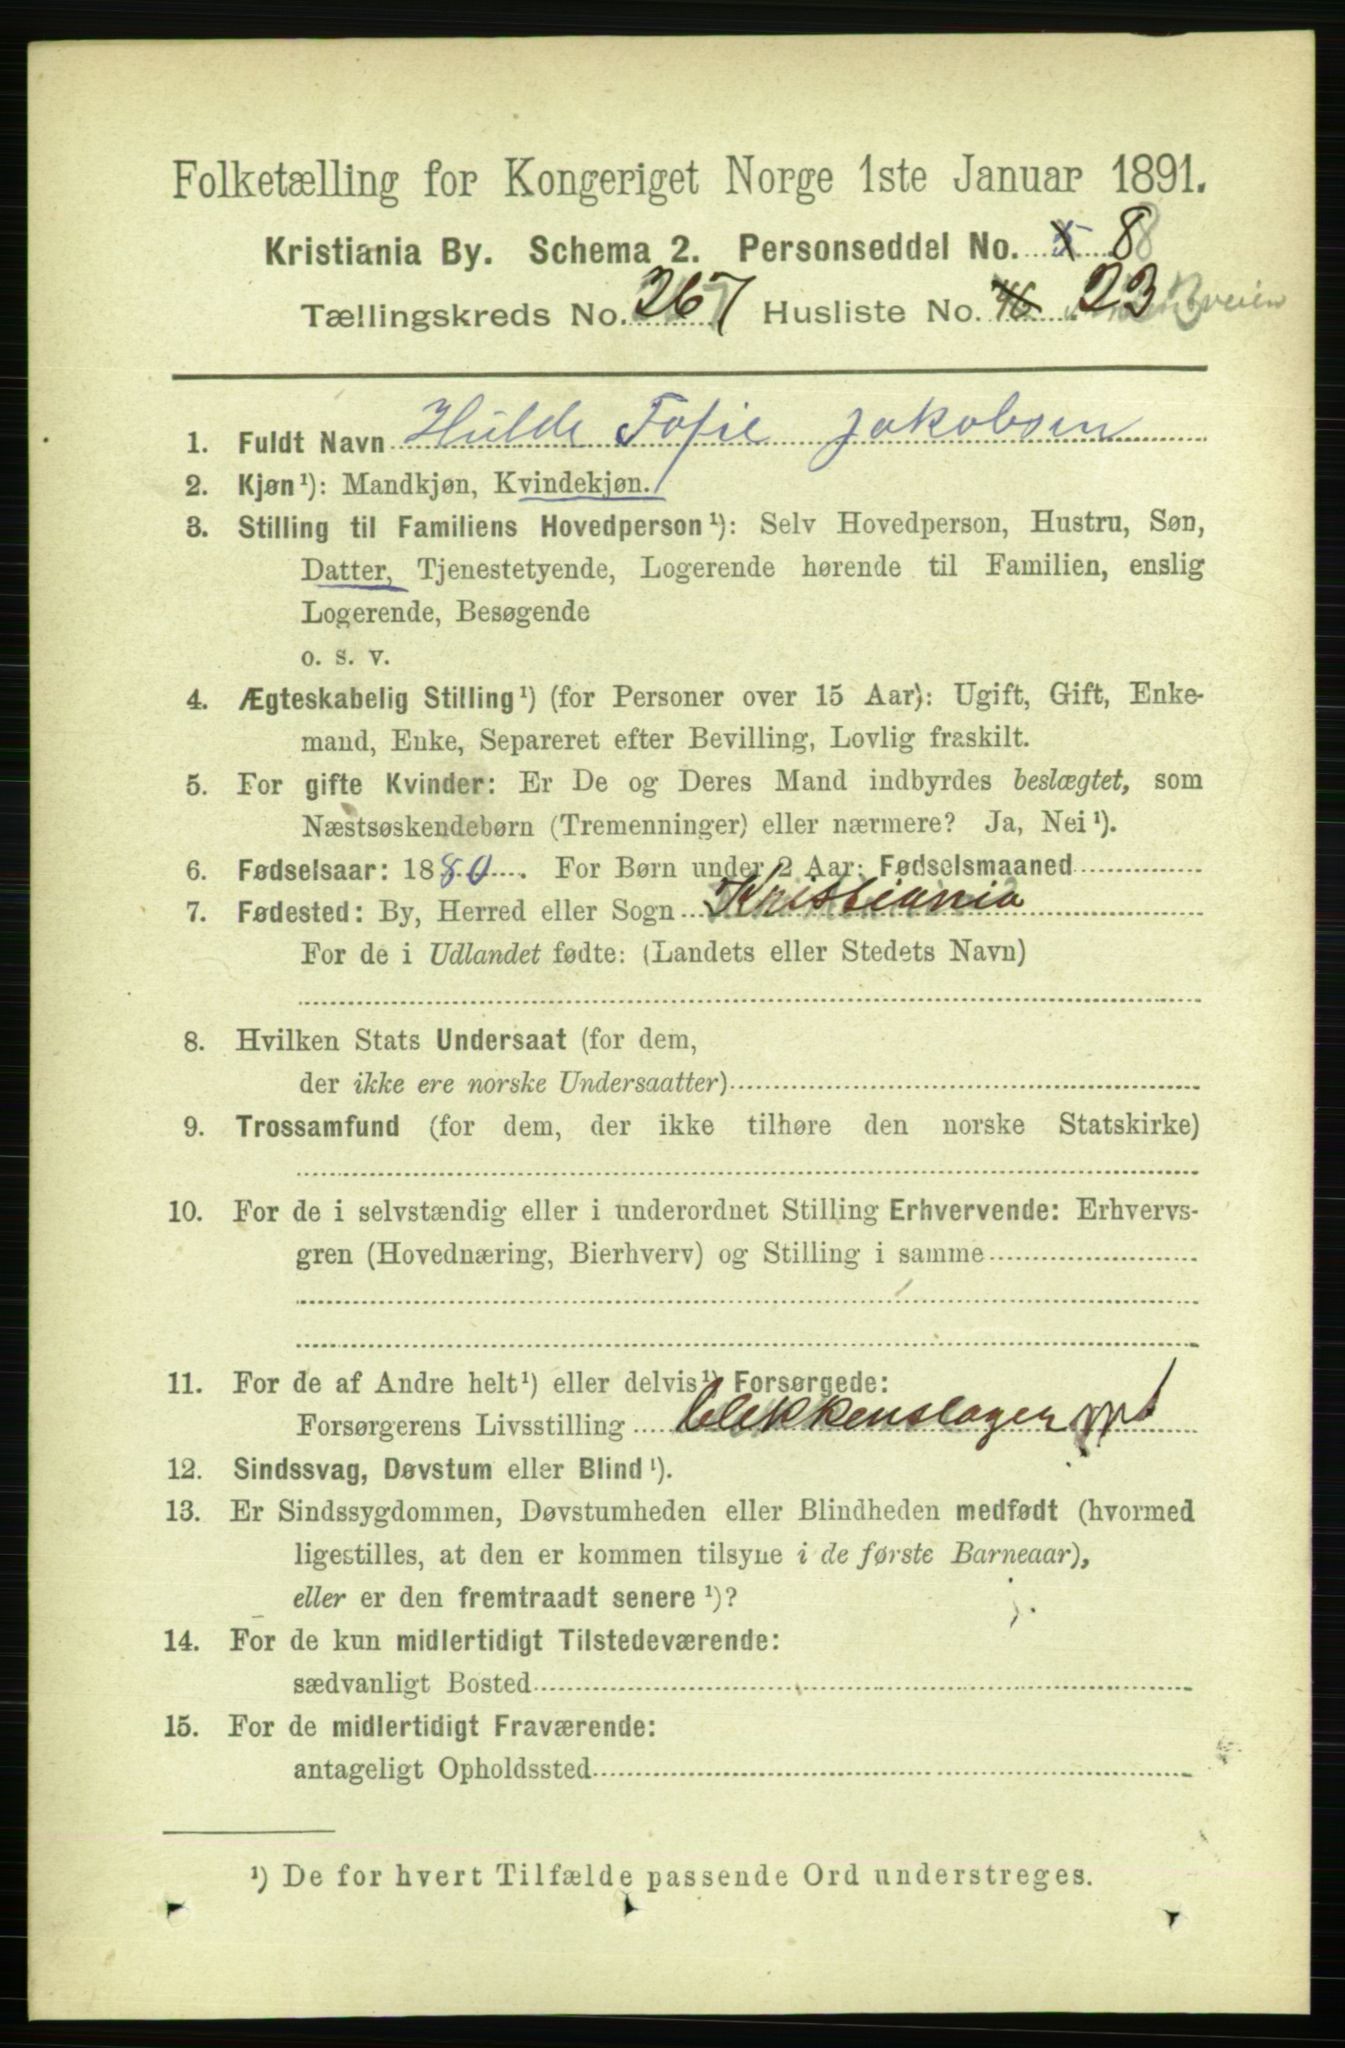 Folketælling for Kongeriget Norge 1ste Januar 1891.
Kristiania By. Schema 2. Personseddel No. 8
Tællingskreds No. 267 Husliste No. 46 23
1. Fuldt Navn Hulde Sofie Jakobsen
2. Kjøn ¹): Mandkjøn, Kvindekjøn.
3. Stilling til Familiens Hovedperson ¹): Selv Hovedperson, Hustru, Søn,
Datter, Tjenestetyende, Logerende hørende til Familien, enslig
Logerende, Besøgende
o. s. v.
4. Ægteskabelig Stilling ¹) (for Personer over 15 Aar): Ugift, Gift, Enke-
mand, Enke, Separeret efter Bevilling, Lovlig fraskilt.
5. For gifte Kvinder: Er De og Deres Mand indbyrdes beslægtet, som
Næstsøskendebørn (Tremenninger) eller nærmere? Ja, Nei ¹).
6. Fødselsaar: 1880. For Børn under 2 Aar: Fødselsmaaned
7. Fødested: By, Herred eller Sogn Kristiania
For de i Udlandet fødte: (Landets eller Stedets Navn)
8. Hvilken Stats Undersaat (for dem,
der ikke ere norske Undersaatter)
9. Trossamfund (for dem, der ikke tilhøre den norske Statskirke)
10. For de i selvstændig eller i underordnet Stilling Erhvervende: Erhvervs-
gren (Hovednæring, Bierhverv) og Stilling i samme
11. For de af Andre helt ¹) eller delvis ¹) Forsørgede:
Forsørgerens Livsstilling blekkenslager
12. Sindssvag, Døvstum eller Blind ¹).
13. Er Sindssygdommen, Døvstumheden eller Blindheden medfødt (hvormed
ligestilles, at den er kommen tilsyne i de første Barneaar),
eller er den fremtraadt senere ¹)?
14. For de kun midlertidigt Tilstedeværende:
sædvanligt Bosted
15. For de midlertidigt Fraværende:
antageligt Opholdssted
¹) De for hvert Tilfælde passende Ord understreges.